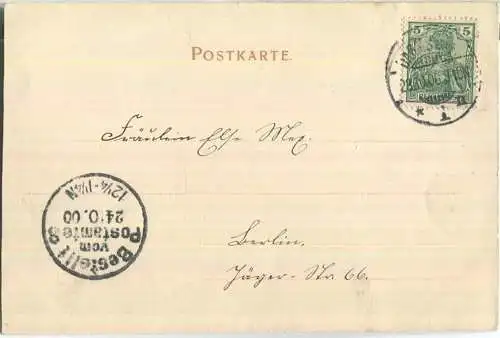 POSTKARTE.
5 5
Fräulein Else Mex.
Bestellt
vom
Postamte 8
24.10.00
12¼-1¼N
Berlin.
Jäger-Str. 66.